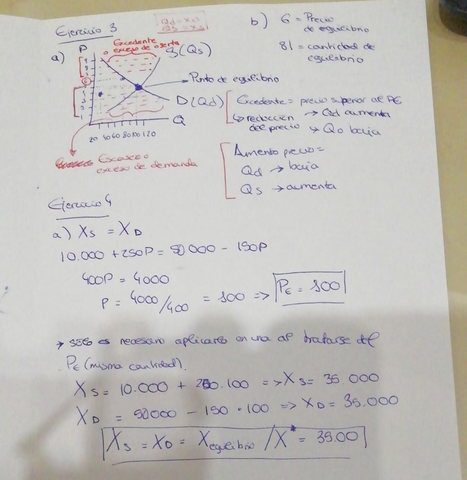 Ejercicio 3
Qd = XD
QS = XS
b) 6 = Precio de equilibrio
81 = cantidad de equilibrio
a)
P
Excedente
exceso de oferta
S (Qs)
Punto de equilibrio
D (Qd)
Q
20 40 60 80 100 120
Escasez o
exceso de demanda
Excedente = precio superior al PE
reducción del precio → Qd aumenta
→ Qo baja
Aumento precio =
Qd → baja
Qs → aumenta
Ejercicio 4
a) XS = XD
10.000 + 250P = 50000 - 150P
400P = 4000
P = 4000/400 = 100 => PE = 100
→ solo es necesario aplicarlo en una al tratarse del
PE (misma cantidad).
XS = 10.000 + 250.100 => XS = 35.000
XD = 50000 - 150 · 100 => XD = 35.000
XS = XD = Xequilibrio / X* = 35.00